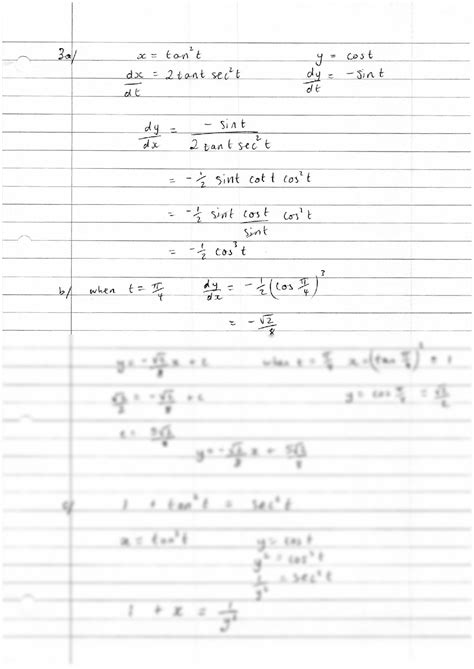 3a/ x = tan²t y = cost
dx/dt = 2tant sec²t dy/dt = -sint
dy/dx = -sint / 2tant sec²t
= -½ sint cott cos²t
= -½ sint cost/sint cos²t
= -½ cos³t
b/ when t = π/4 dy/dx = -½(cos π/4)³
= -√2/8
y = -√2/8 x + c when t = π/4 x = (tan π/4)² = 1
√2/2 = -√2/8 + c y = cos π/4 = √2/2
c = 5√2/8
y = -√2/8 x + 5√2/8
c/ 1 + tan²t = sec²t
x = tan²t y = cost
y² = cos²t
1/y² = sec²t
1 + x = 1/y²